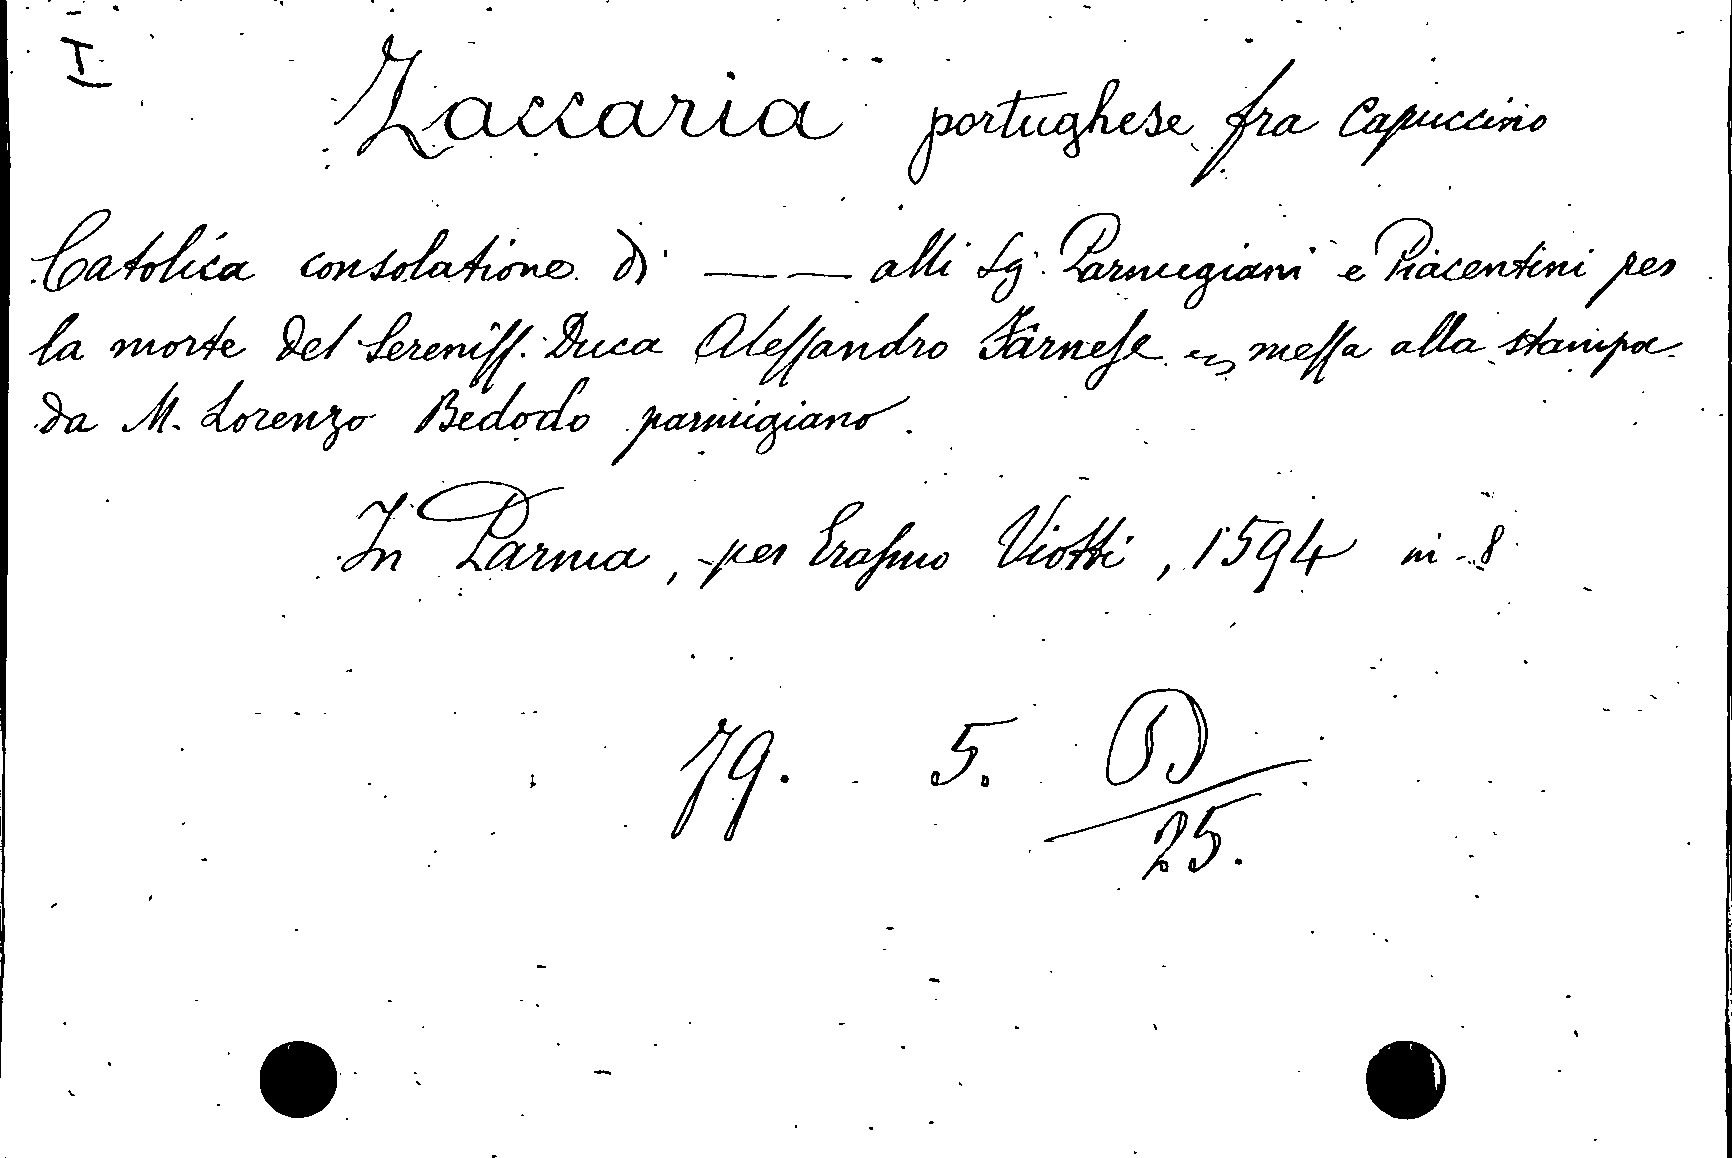 I
Zaccaria portughese fra Capuccino
Catolica consolatione di —— alli Sg. Parmegiani e Piacentini per
la morte del Sereniss. Duca Alessandro Farnese messa alla stampa
da M. Lorenzo Bedodo parmigiano.
In Parma, per Erasmo Viotti, 1594 in 8
79. 5. D
25.